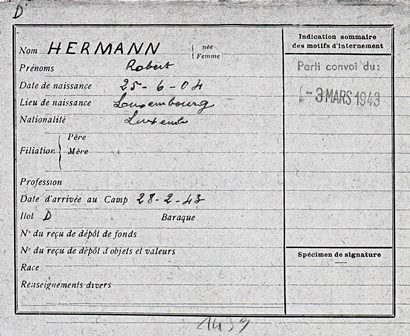 D
Nom HERMANN { née Femme
Prénoms Robert
Date de naissance 25-6-04
Lieu de naissance Luxembourg
Nationalité Luxemb
Filiation { Père
Mère
Profession
Date d'arrivée au Camp 28-2-43
Ilot D Baraque
N° du reçu de dépôt de fonds
N° du reçu de dépôt d'objets et valeurs
Race
Renseignements divers
Indication sommaire
des motifs d'internement
Parti convoi du:
-3 MARS 1943
Spécimen de signature